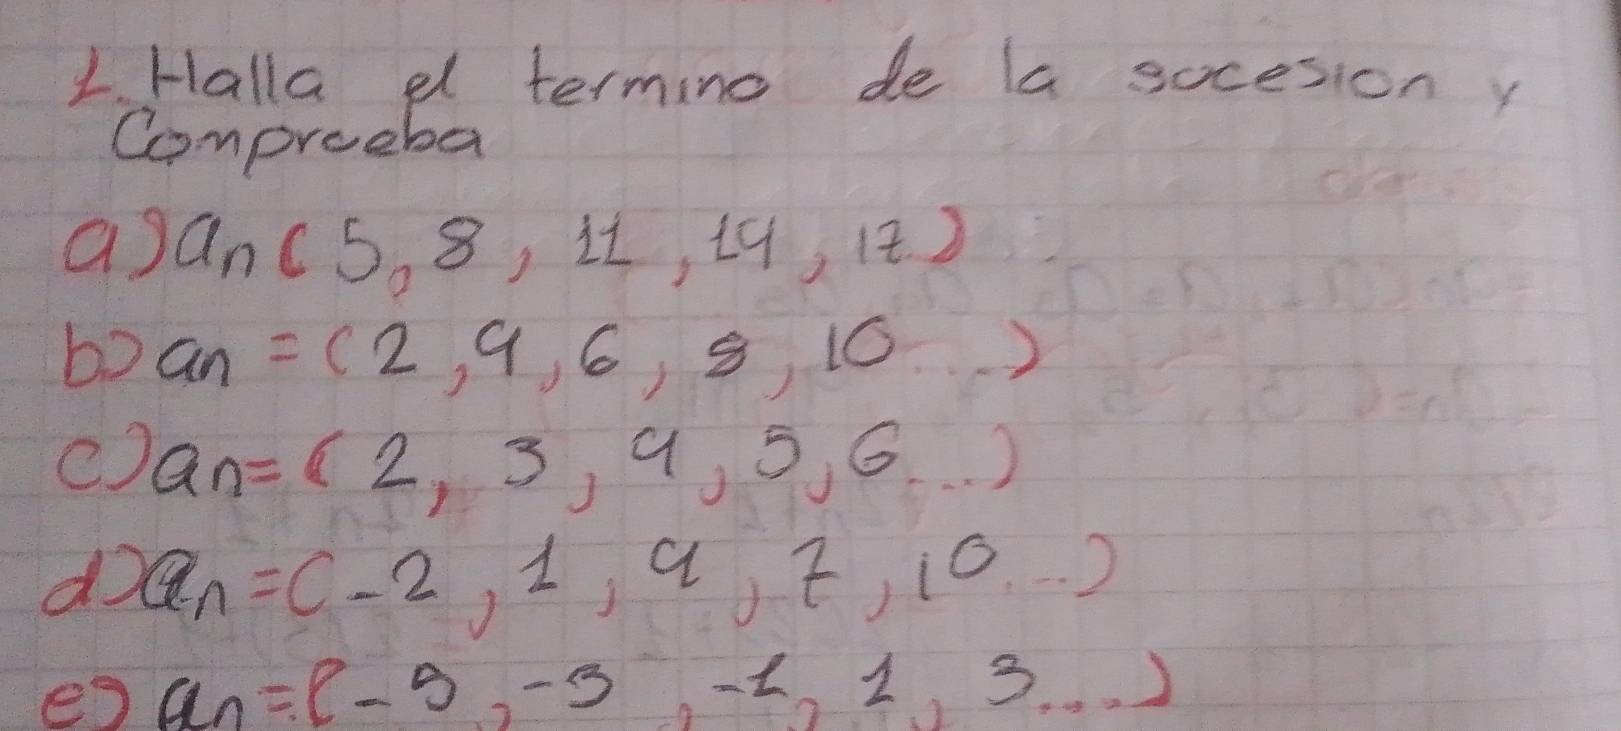 1. Halla el termino de la socesion y
Comprueba
a) an ( 5, 8, 11, 14, 17 )
b) an = ( 2, 4, 6, 8, 10 ... )
c) an = ( 2, 3, 4, 5, 6 ... )
d) an = ( -2, 1, 4, 7, 10 ... )
e) an = ( -5, -3, -1, 1, 3 .... )